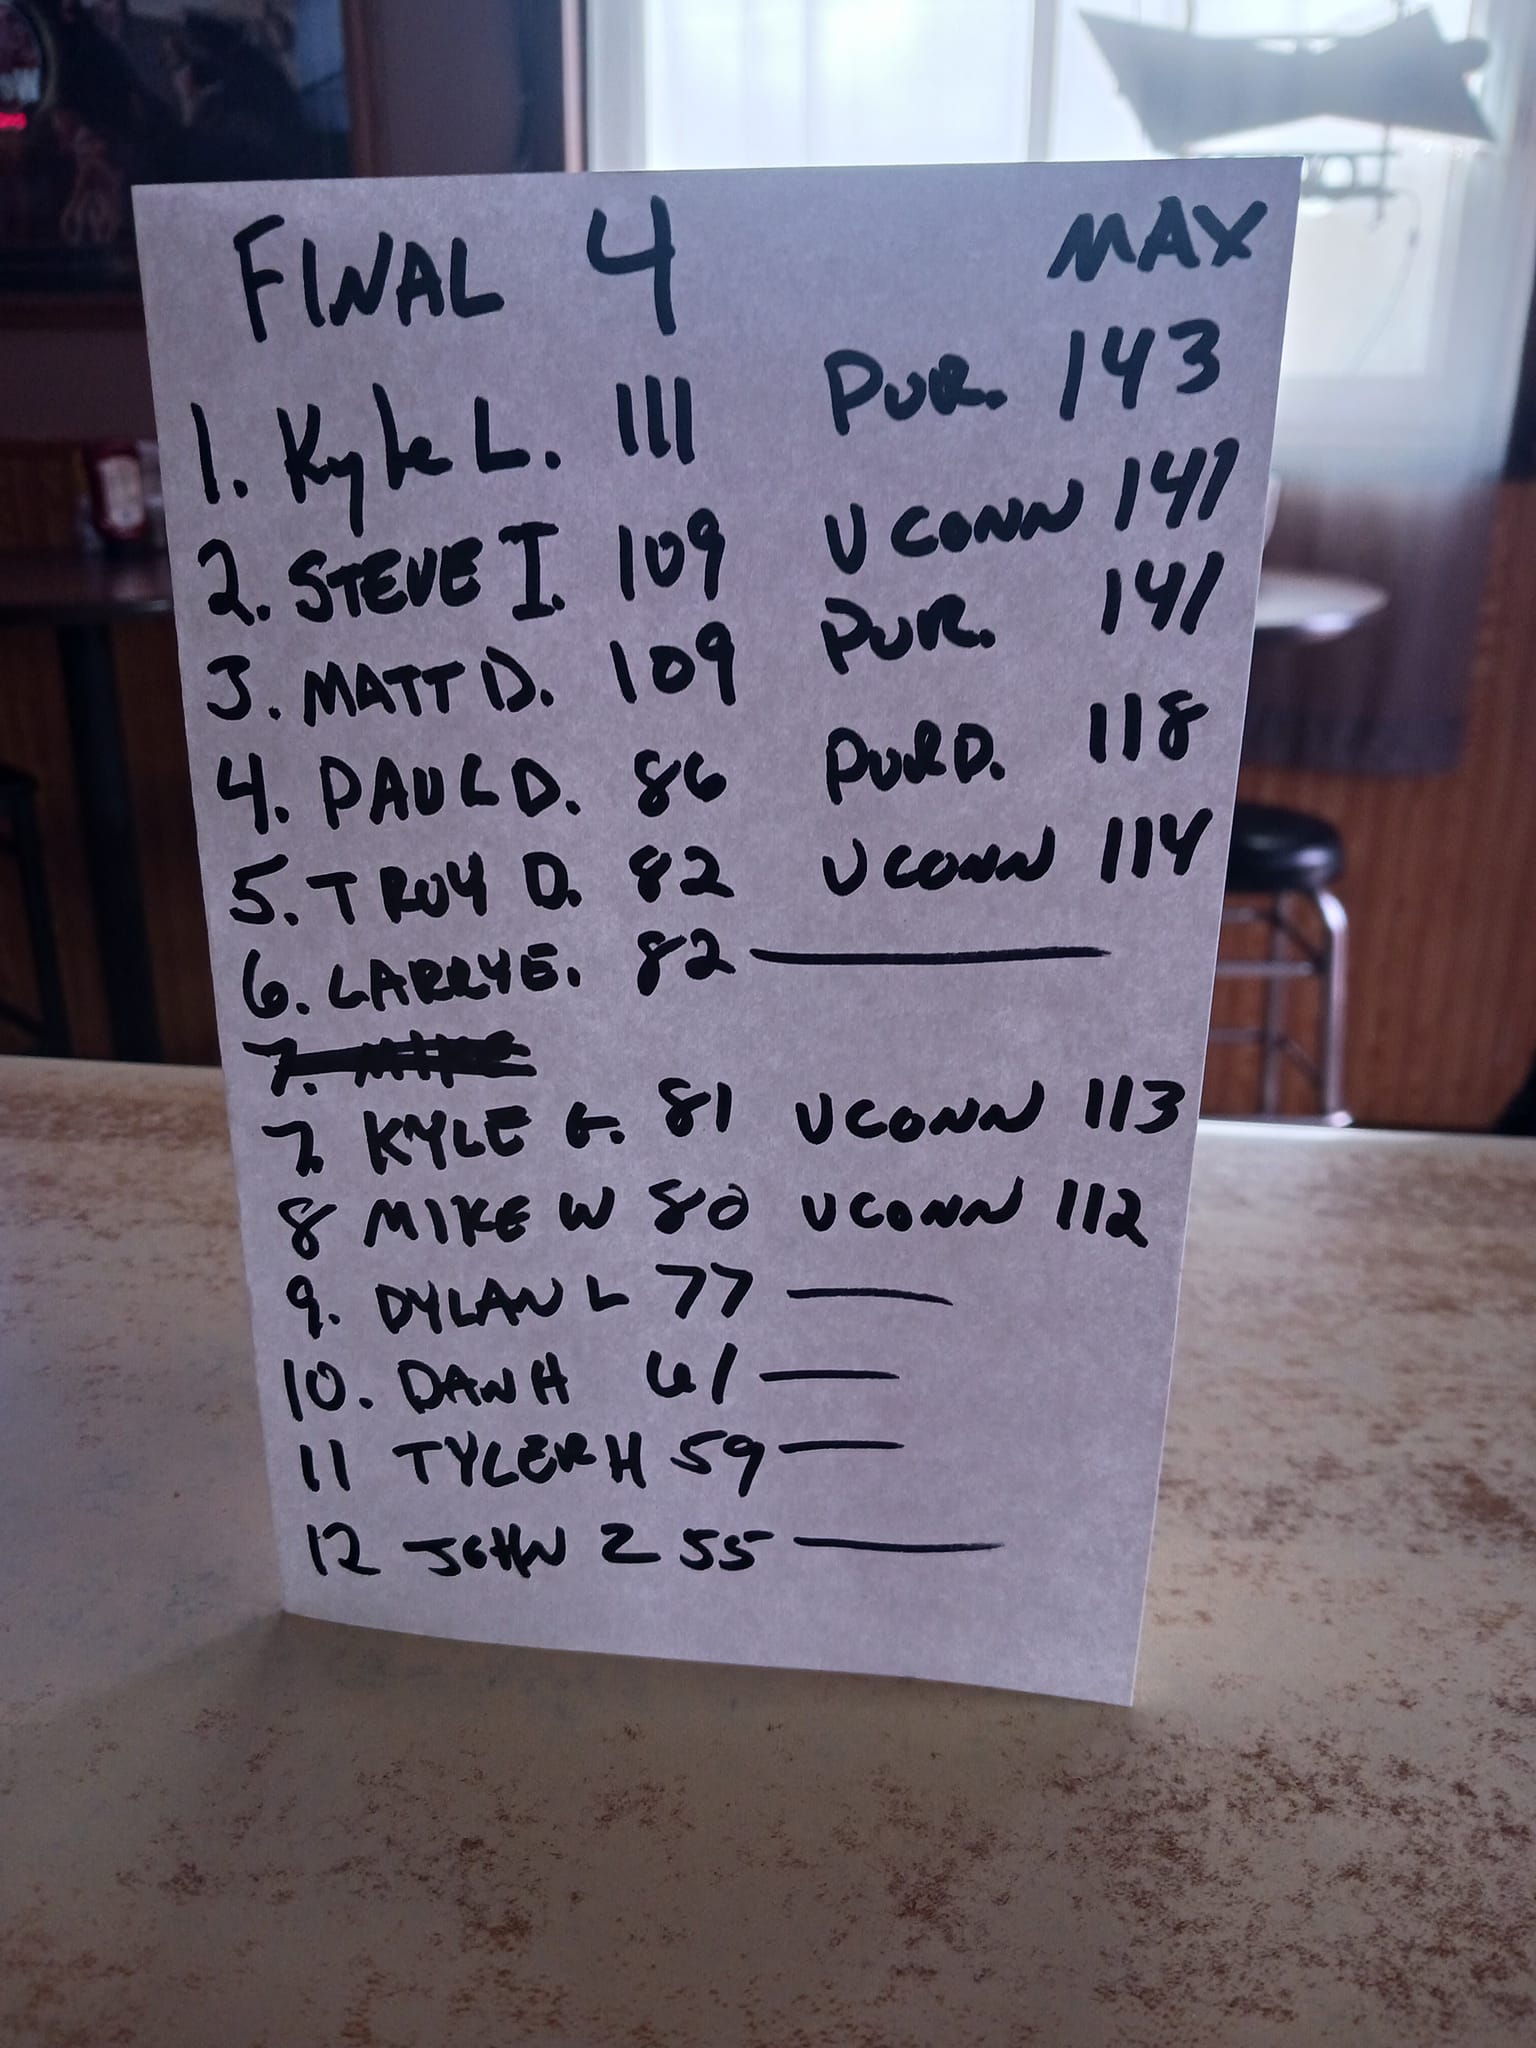 FINAL 4 MAX
1. Kyle L. 111 PUR. 143
2. STEVE I. 109 UCONN 141
3. MATT D. 109 PUR. 141
4. PAUL D. 86 PURD. 118
5. TROY D. 82 UCONN 114
6. LARRY E. 82
7. MIKE
7. KYLE G. 81 UCONN 113
8 MIKE W 80 UCONN 112
9. DYLAN L 77
10. DAN H 61
11 TYLER H 59
12 JOHN Z 55